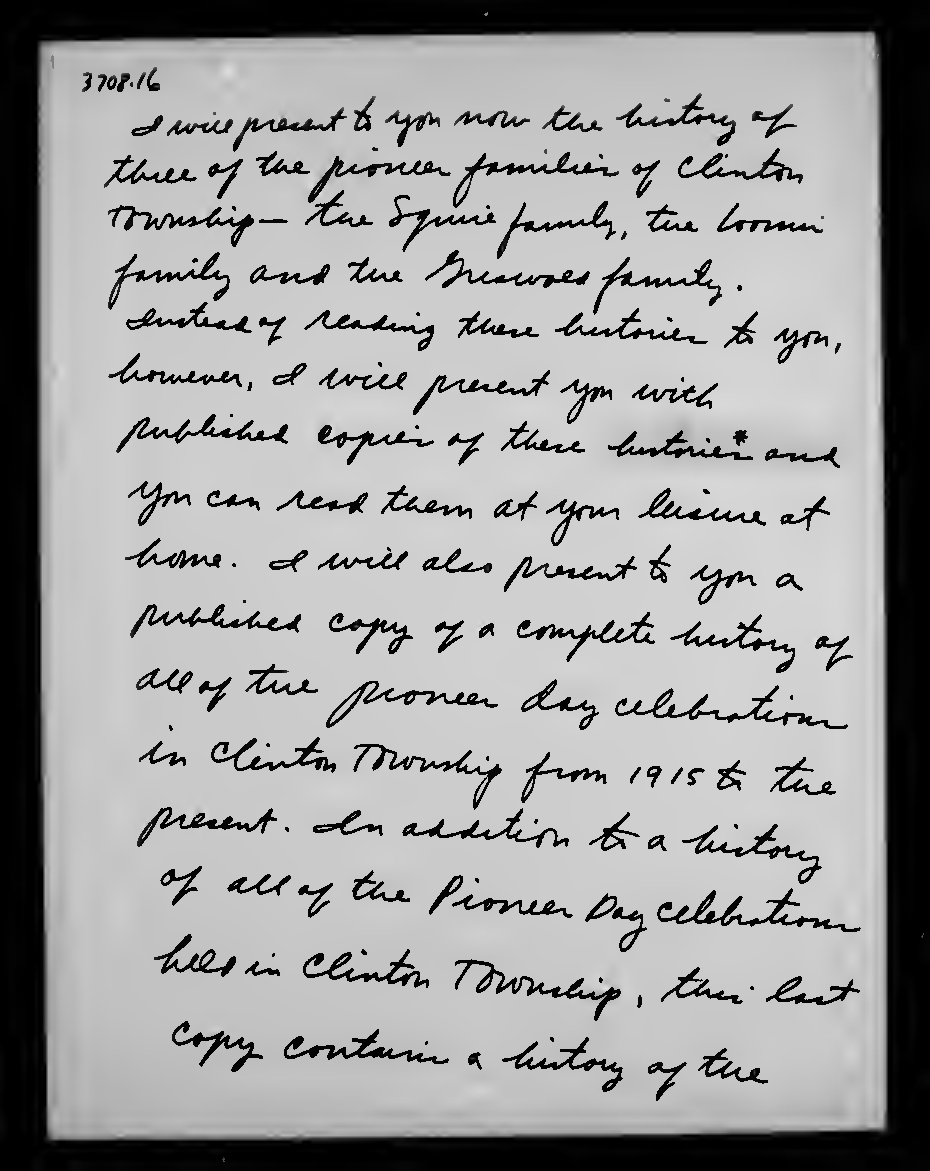 3708.16
I will present to you now the history of
three of the pioneer families of Clinton
Township— the Squire family, the Loomis
family and the Griswold family.
Instead of reading these histories to you,
however, I will present you with
published copies of these histories* and
you can read them at your leisure at
home. I will also present to you a
published copy of a complete history of
all of the pioneer day celebrations
in Clinton Township from 1915 to the
present. In addition to a history
of all of the Pioneer Day celebrations
held in Clinton Township, this last
copy contains a history of the